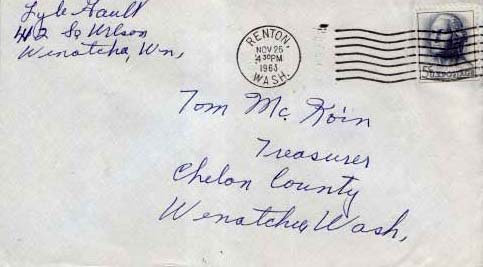 Lyle Gault
412 So Wilson
Wenatcha, Wn,
RENTON
NOV 26
4 30 PM
1963
WASH.
Tom Mc. Koin
Treasurer
Chelan County
Wenatchee, Wash,